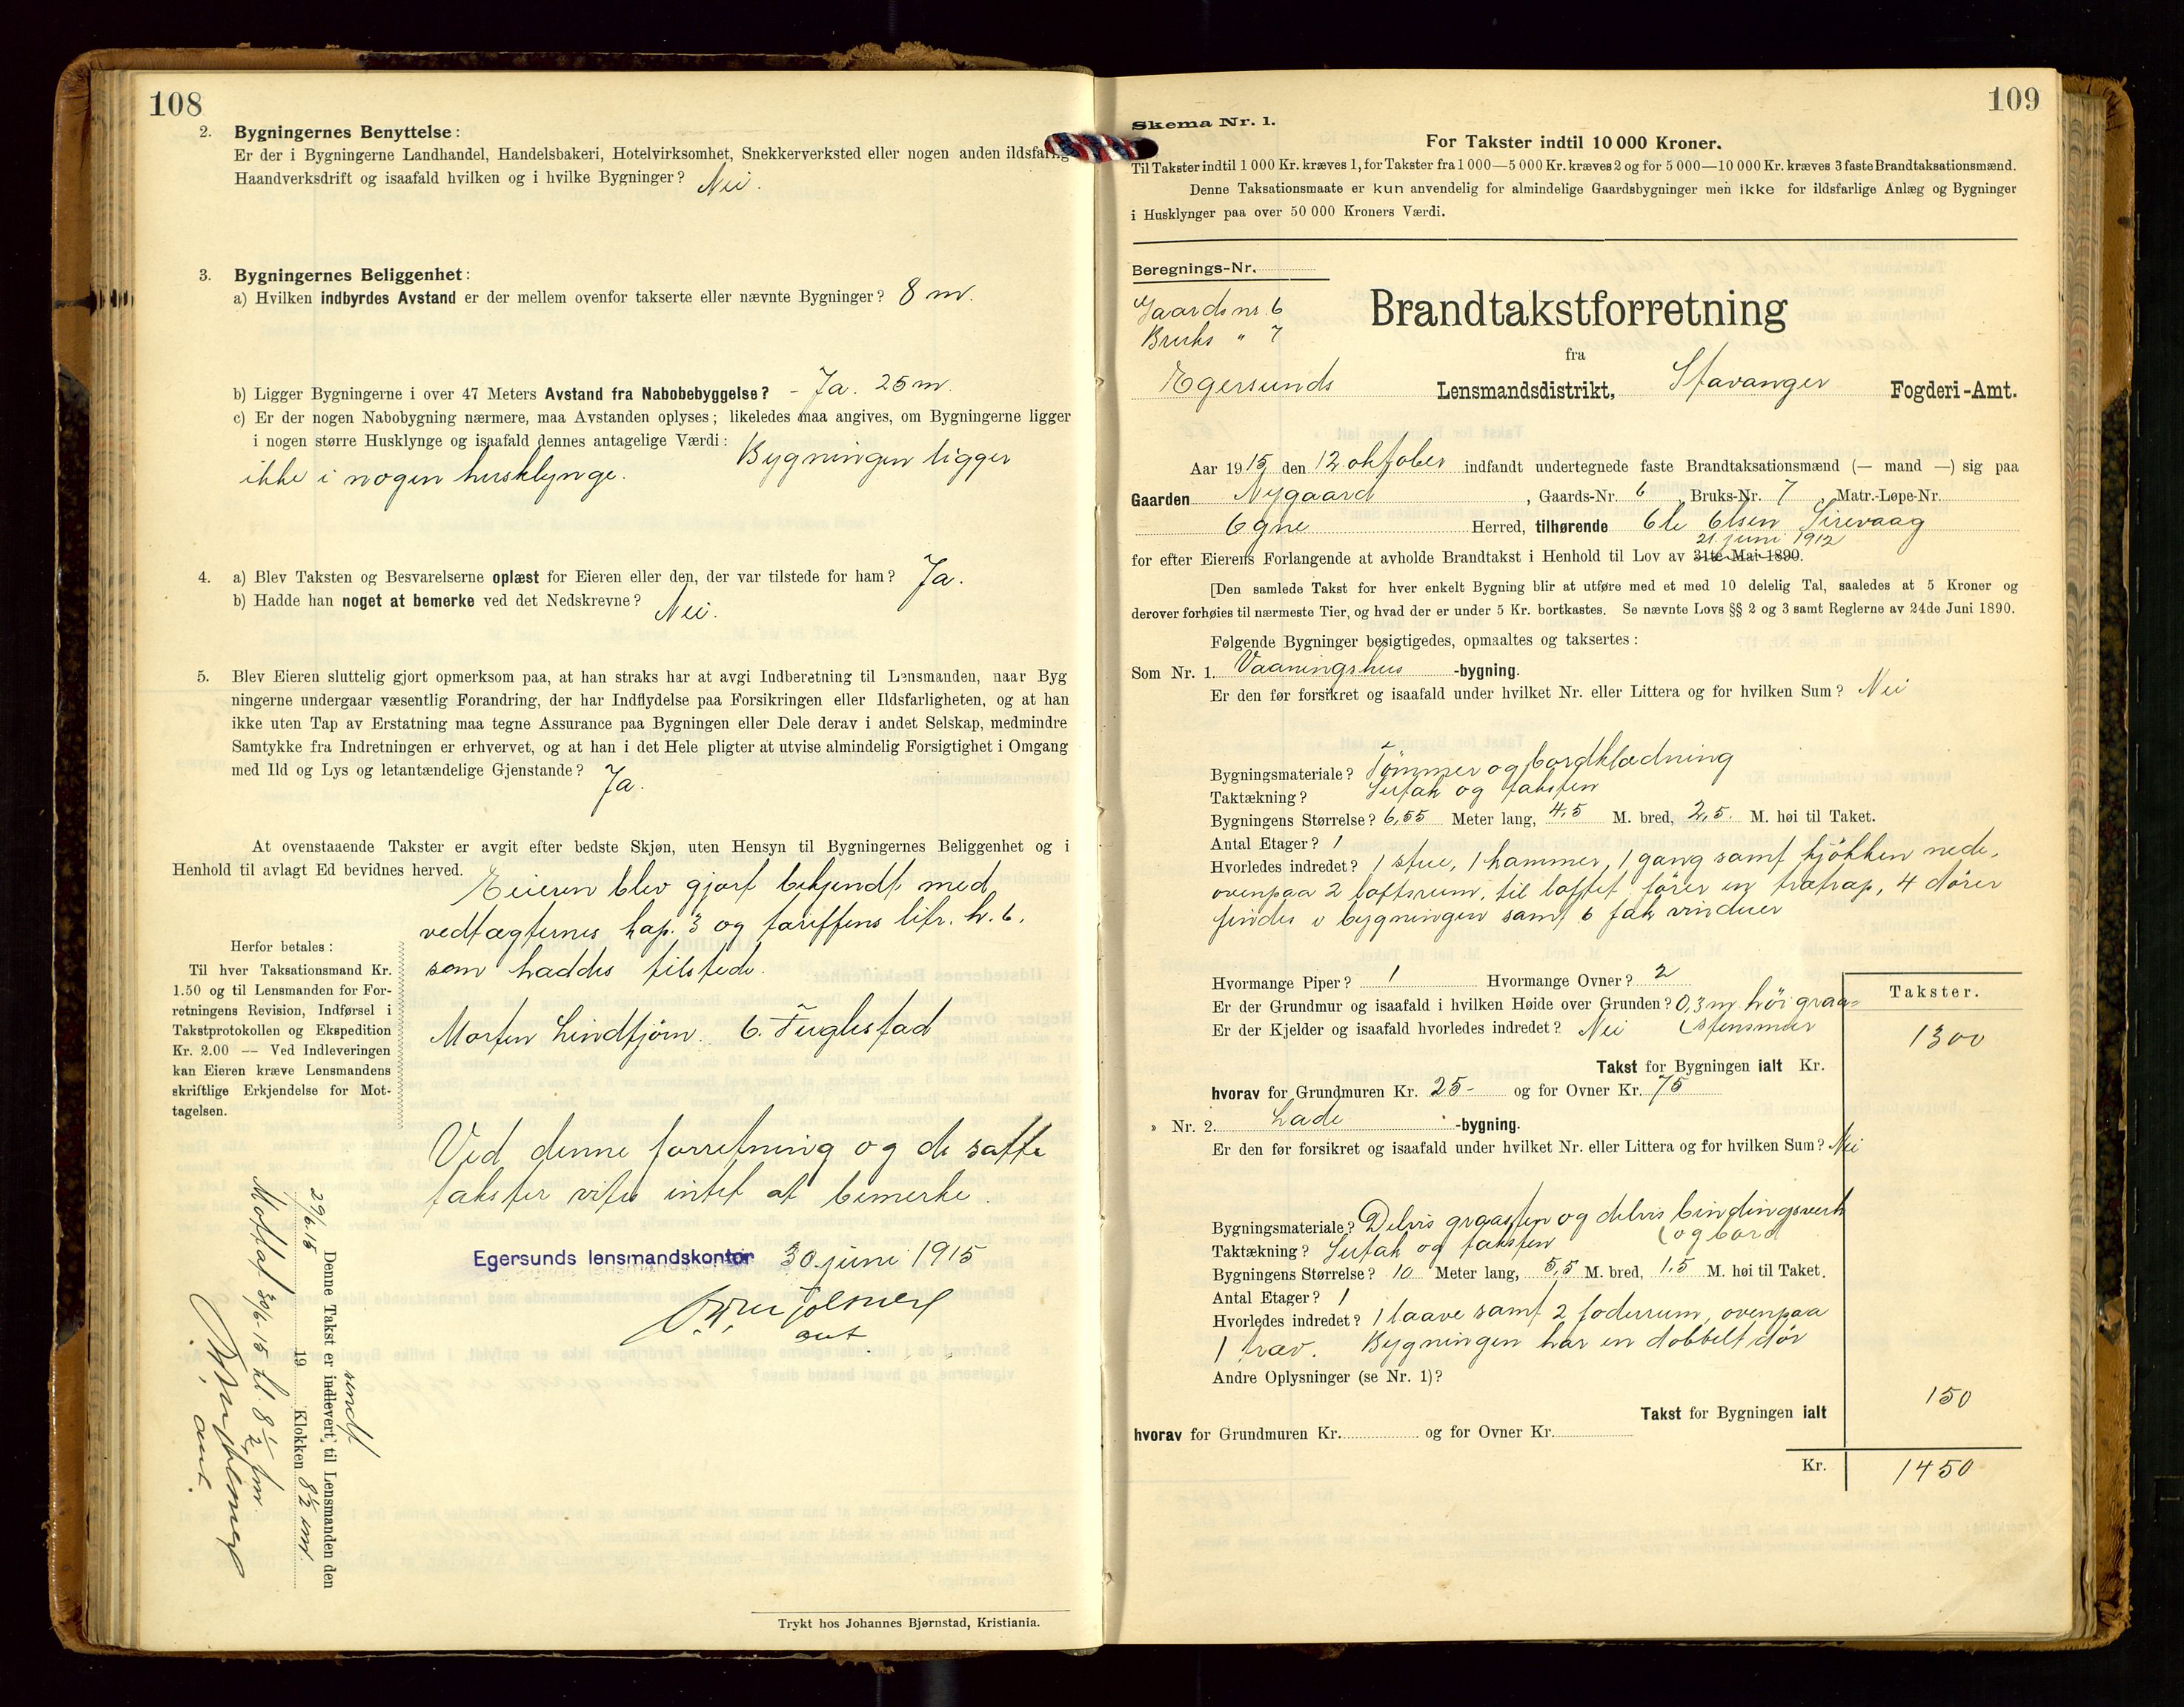 108
2. Bygningernes Benyttelse:
Er der i Bygningerne Landhandel, Handelsbakeri, Hotelvirksomhet, Snekkerverksted eller nogen anden ildsfarlig
Haandverksdrift og isaafald hvilken og i hvilke Bygninger? Nei.
3. Bygningernes Beliggenhet:
a) Hvilken indbyrdes Avstand er der mellem ovenfor takserte eller nævnte Bygninger? 8 m.
b) Ligger Bygningerne i over 47 Meters Avstand fra Nabobebyggelse? - Ja. 25 m.
c) Er der nogen Nabobygning nærmere, maa Avstanden oplyses; likeledes maa angives, om Bygningerne ligger
i nogen større Husklynge og isaafald dennes antagelige Værdi: Bygningen ligger
ikke i nogen husklynge.
4. a) Blev Taksten og Besvarelserne oplæst for Eieren eller den, der var tilstede for ham? Ja.
b) Hadde han noget at bemerke ved det Nedskrevne? Nei.
5. Blev Eieren sluttelig gjort opmerksom paa, at han straks har at avgi Indberetning til Lensmanden, naar Byg
ningerne undergaar væsentlig Forandring, der har Indflydelse paa Forsikringen eller Ildsfarligheten, og at han
ikke uten Tap av Erstatning maa tegne Assurance paa Bygningen eller Dele derav i andet Selskap, medmindre
Samtykke fra Indretningen er erhvervet, og at han i det Hele pligter at utvise almindelig Forsigtighet i Omgang
med Ild og Lys og letantændelige Gjenstande? Ja.
At ovenstaaende Takster er avgit efter bedste Skjøn, uten Hensyn til Bygningernes Beliggenhet og i
Henhold til avlagt Ed bevidnes herved.
Eieren blev gjort bekjendt med
vedtægternes kap. 3 og tariffens litr. h. 6.
som haddes tilstede.
Morten Lindtjörn. O. Fuglestad
Herfor betales:
Til hver Taksationsmand Kr.
1.50 og til Lensmanden for For-
retningens Revision, Indførsel i
Takstprotokollen og Ekspedition
Kr. 2.00 — Ved Indleveringen
kan Eieren kræve Lensmandens
skriftlige Erkjendelse for Mot-
tagelsen.
Ved denne forretning og de satte
takster vites intet at bemerke.
Egersunds lensmandskontor 30 juni 1915
aut
sendt
Denne Takst er indlevert til Lensmanden den
29/6.15 19 Klokken 8½ em.
Mottat 30/6-15 kl. 8½ fm.
aut.
Trykt hos Johannes Bjørnstad, Kristiania.
109
Skema Nr. 1.
For Takster indtil 10 000 Kroner.
Til Takster indtil 1 000 Kr. kræves 1, for Takster fra 1 000—5 000 Kr. kræves 2 og for 5 000—10 000 Kr. kræves 3 faste Brandtaksationsmænd.
Denne Taksationsmaate er kun anvendelig for almindelige Gaardsbygninger men ikke for ildsfarlige Anlæg og Bygninger
i Husklynger paa over 50 000 Kroners Værdi.
Beregnings-Nr.
Gaards nr. 6
Bruks " 7
Brandtakstforretning
fra
Egersunds Lensmandsdistrikt, Stavanger Fogderi-Amt.
Aar 1915 den 12 oktober indfandt undertegnede faste Brandtaksationsmænd (— mand —) sig paa
Gaarden Nygaard, Gaards-Nr. 6, Bruks-Nr. 7, Matr.-Løpe-Nr.
Ogne Herred, tilhørende Ole Olsen Sirevaag
21 juni 1912
for efter Eierens Forlangende at avholde Brandtakst i Henhold til Lov av 31te Mai 1890.
[Den samlede Takst for hver enkelt Bygning blir at utføre med et med 10 delelig Tal, saaledes at 5 Kroner og
derover forhøies til nærmeste Tier, og hvad der er under 5 Kr. bortkastes. Se nævnte Lovs §§ 2 og 3 samt Reglerne av 24de Juni 1890.
Følgende Bygninger besigtigedes, opmaaltes og taksertes:
Som Nr. 1. Vaaningshus -bygning.
Er den før forsikret og isaafald under hvilket Nr. eller Littera og for hvilken Sum? Nei
Bygningsmateriale? Tömmer og bordklædning
Taktækning? Sutak og taksten
Bygningens Størrelse? 6,55 Meter lang, 4,5 M. bred, 2,5. M. høi til Taket.
Antal Etager? 1
Hvorledes indredet? 1 stue, 1 kammer, 1 gang samt kjökken nede,
ovenpaa 2 loftsrum, til loftet förer en trætrap, 4 dörer
findes i bygningen samt 6 fak vinduer
Hvormange Piper? 1 Hvormange Ovner? 2
Er der Grundmur og isaafald i hvilken Høide over Grunden? 0,3 m. höi graa=
Er der Kjelder og isaafald hvorledes indredet? Nei (stensmur
Takster.
1300
Takst for Bygningen ialt Kr.
hvorav for Grundmuren Kr. 25- og for Ovner Kr. 75
» Nr. 2. Lade -bygning.
Er den før forsikret og isaafald under hvilket Nr. eller Littera og for hvilken Sum? Nei
Bygningsmateriale? Delvis graasten og delvis bindingsverk
Taktækning? Sutak og taksten (og bord
Bygningens Størrelse? 10 Meter lang, 5,5 M. bred, 1.5 M. høi til Taket.
Antal Etager? 1
Hvorledes indredet? 1 laave samt 2 foderrum, ovenpaa
1 træv. Bygningen har en dobbelt dör
Andre Oplysninger (se Nr. 1)?
150
Takst for Bygningen ialt
hvorav for Grundmuren Kr. og for Ovner Kr.
Kr. 1450